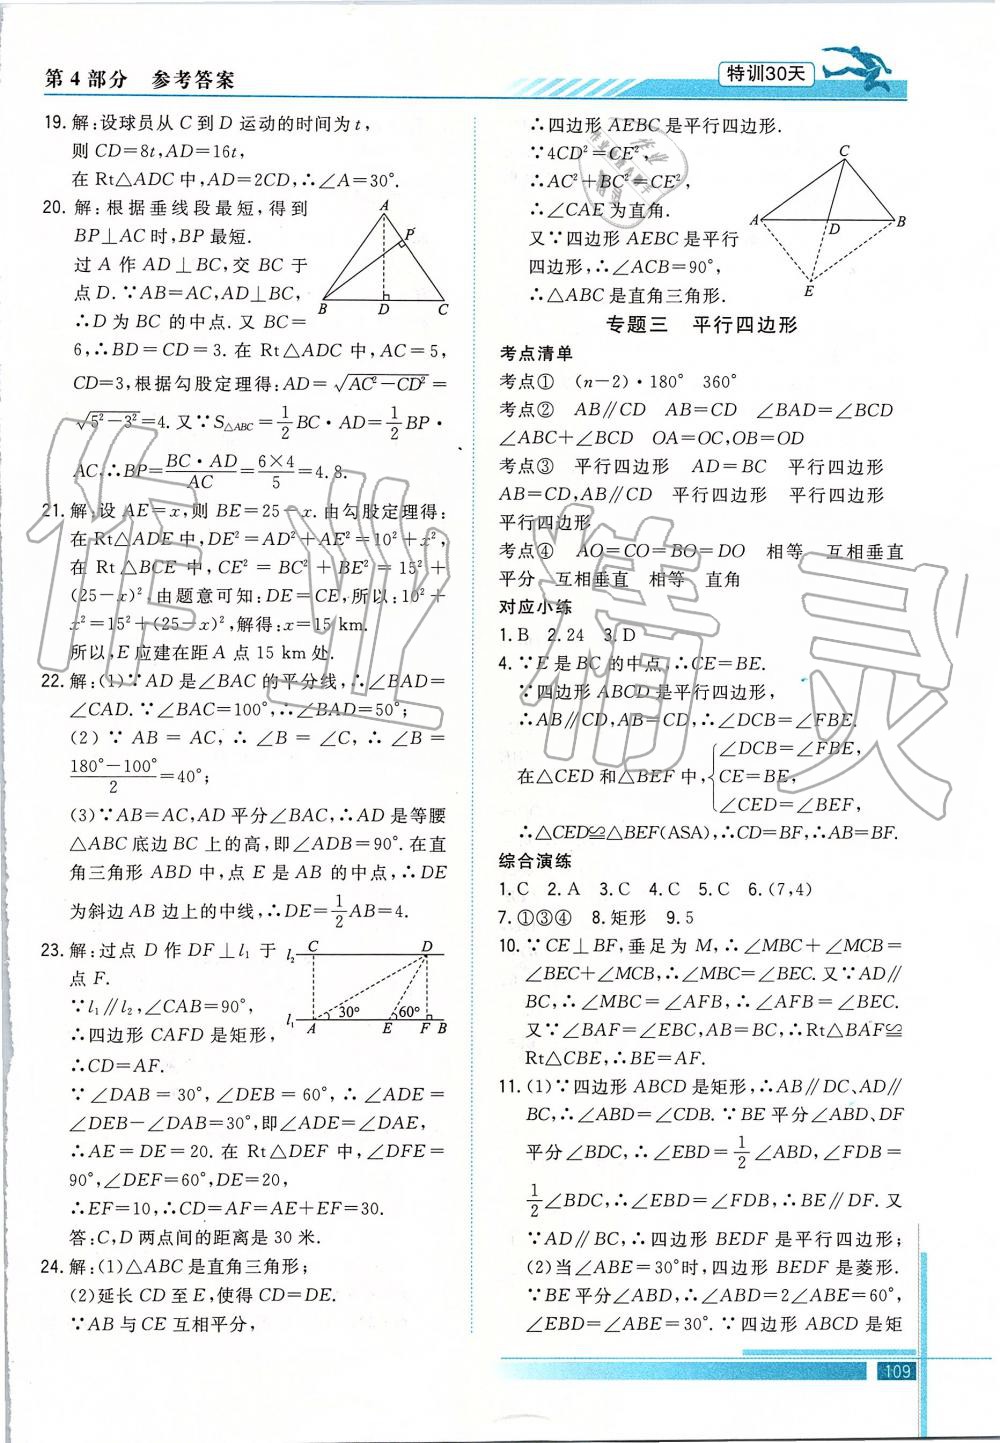 第4部分 参考答案
特训30天
19. 解:设球员从 C 到 D 运动的时间为 t,
则 CD=8t,AD=16t,
在 Rt△ADC 中,AD=2CD,∴∠A=30°.
20. 解:根据垂线段最短,得到
BP⊥AC 时,BP 最短.
过 A 作 AD⊥BC,交 BC 于
点 D.∵AB=AC,AD⊥BC,
∴D 为 BC 的中点. 又 BC=
6,∴BD=CD=3. 在 Rt△ADC 中,AC=5,
CD=3,根据勾股定理得:AD=√(AC²-CD²)=
√(5²-3²)=4. 又∵S△ABC=1/2 BC·AD=1/2 BP·
AC,∴BP=(BC·AD)/AC=(6×4)/5=4.8.
A
P
B D C
21. 解:设 AE=x,则 BE=25-x. 由勾股定理得:
在 Rt△ADE 中,DE²=AD²+AE²=10²+x²,
在 Rt△BCE 中,CE²=BC²+BE²=15²+
(25-x)². 由题意可知:DE=CE,所以:10²+
x²=15²+(25-x)²,解得:x=15 km.
所以,E 应建在距 A 点 15 km 处.
22. 解:(1)∵AD 是∠BAC 的平分线,∴∠BAD=
∠CAD.∵∠BAC=100°,∴∠BAD=50°;
(2)∵AB=AC,∴∠B=∠C,∴∠B=
(180°-100°)/2=40°;
(3)∵AB=AC,AD 平分∠BAC,∴AD 是等腰
△ABC 底边 BC 上的高,即∠ADB=90°. 在直
角三角形 ABD 中,点 E 是 AB 的中点,∴DE
为斜边 AB 边上的中线,∴DE=1/2 AB=4.
23. 解:过点 D 作 DF⊥l₁ 于
点 F.
∵l₁∥l₂,∠CAB=90°,
∴四边形 CAFD 是矩形,
∴CD=AF.
l₂ C D
30° 60°
l₁ A E F B
∵∠DAB=30°,∠DEB=60°,∴∠ADE=
∠DEB-∠DAB=30°,即∠ADE=∠DAE,
∴AE=DE=20. 在 Rt△DEF 中,∠DFE=
90°,∠DEF=60°,DE=20,
∴EF=10,∴CD=AF=AE+EF=30.
答:C,D 两点间的距离是 30 米.
24. 解:(1)△ABC 是直角三角形;
(2)延长 CD 至 E,使得 CD=DE.
∵AB 与 CE 互相平分,
∴四边形 AEBC 是平行四边形.
∵4CD²=CE²,
∴AC²+BC²=CE²,
∴∠CAE 为直角.
又∵四边形 AEBC 是平行
四边形,∴∠ACB=90°,
∴△ABC 是直角三角形.
C
A D B
E
专题三 平行四边形
考点清单
考点① (n-2)·180° 360°
考点② AB∥CD AB=CD ∠BAD=∠BCD
∠ABC+∠BCD OA=OC,OB=OD
考点③ 平行四边形 AD=BC 平行四边形
AB=CD,AB∥CD 平行四边形 平行四边形
平行四边形
考点④ AO=CO=BO=DO 相等 互相垂直
平分 互相垂直 相等 直角
对应小练
1. B 2. 24 3. D
4. ∵E 是 BC 的中点,∴CE=BE.
∵四边形 ABCD 是平行四边形,
∴AB∥CD,AB=CD,∴∠DCB=∠FBE.
在△CED 和△BEF 中,{∠DCB=∠FBE,
CE=BE,
∠CED=∠BEF,
∴△CED≌△BEF(ASA),∴CD=BF,∴AB=BF.
综合演练
1. C 2. A 3. C 4. C 5. C 6. (7,4)
7. ①③④ 8. 矩形 9. 5
10. ∵CE⊥BF,垂足为 M,∴∠MBC+∠MCB=
∠BEC+∠MCB,∴∠MBC=∠BEC. 又∵AD∥
BC,∴∠MBC=∠AFB,∴∠AFB=∠BEC.
又∵∠BAF=∠EBC,AB=BC,∴Rt△BAF≌
Rt△CBE,∴BE=AF.
11. (1)∵四边形 ABCD 是矩形,∴AB∥DC、AD∥
BC,∴∠ABD=∠CDB.∵BE 平分∠ABD、DF
平分∠BDC,∴∠EBD=1/2∠ABD,∠FDB=
1/2∠BDC,∴∠EBD=∠FDB,∴BE∥DF. 又
∵AD∥BC,∴四边形 BEDF 是平行四边形;
(2)当∠ABE=30°时,四边形 BEDF 是菱形.
∵BE 平分∠ABD,∴∠ABD=2∠ABE=60°,
∠EBD=∠ABE=30°.∵四边形 ABCD 是矩
109
作业精灵